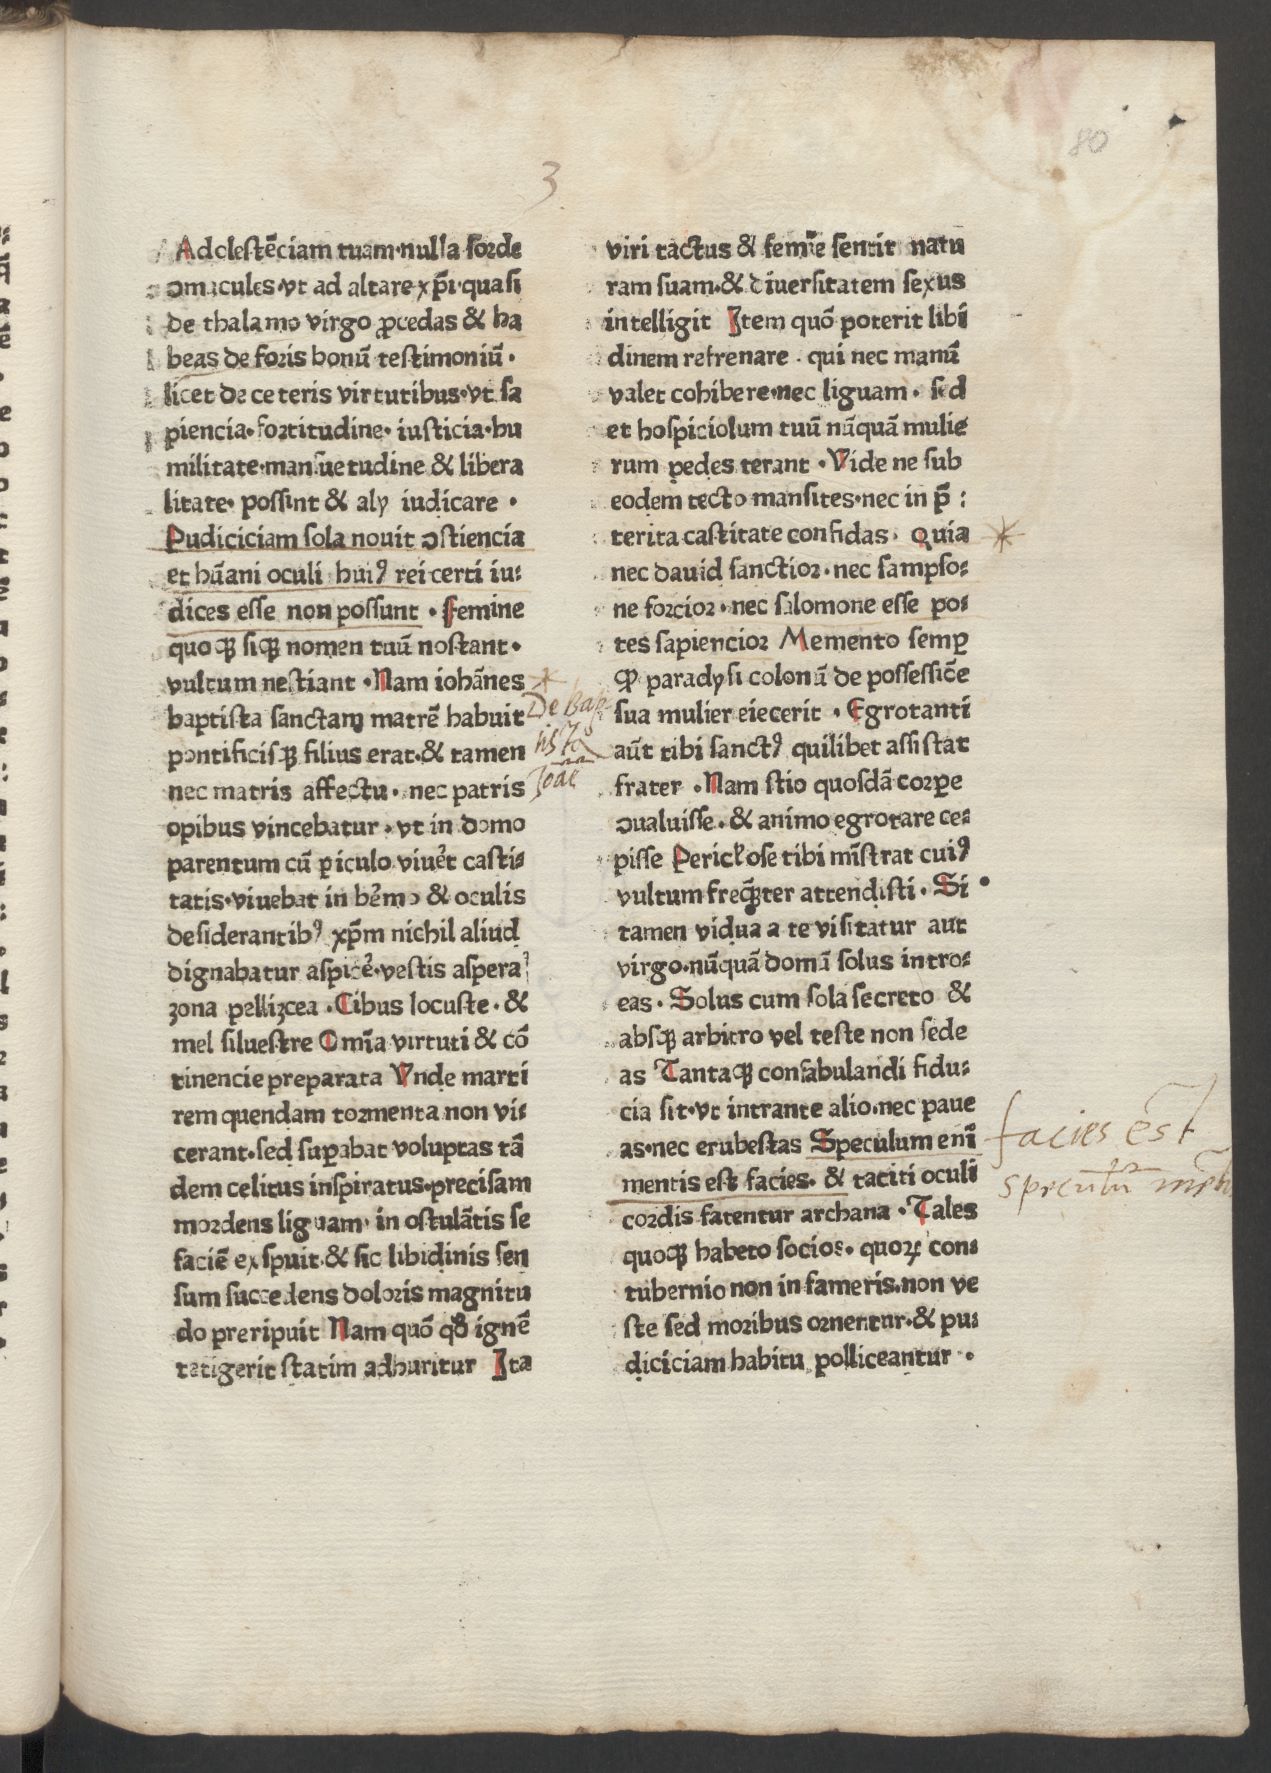 80
3
Adolestēciam tuam·nulla sorde
ↄmacules·vt ad altare xp̄i·quasi
de thalamo virgo ꝓcedas & ha
beas de foris bonū testimoniū·
licet de ceteris virtutibus·vt sa
piencia·fortitudine·iusticia·hu
militate·mansuetudine & libera
litate·possint & aly iudicare·
Pudiciciam sola nouit ↄstiencia
et hūani oculi huiꝰ rei certi iu:
dices esse non possunt·Femine
quoqꝫ siqꝫ nomen tuū nostant·
vultum nestiant·Nam iohānes
baptista sanctam matrē habuit
pontificisqꝫ filius erat·& tamen
nec matris affectu·nec patris
opibus vincebatur·vt in domo
parentum cū ꝑiculo viuēt casti:
tatis·viuebat in hēmo & oculis
desiderantibꝰ xp̄m nichil aliud
dignabatur aspicē·vestis aspera
zona pellizcea·Cibus locuste·&
mel siluestre Omīa virtuti & cō
tinencie preparata Vnde marti
rem quendam tormenta non vi:
cerant·sed suꝑabat voluptas tā
dem celitus inspiratus·precisam
mordens liguam·in ostulātis se
faciē exspuit·& sic libidinis sen
sum succedens doloris magnitu
do preripuit Nam quō qd̄ ignē
tetigerit statim adhuritur Ita
viri tactus & femīe sentit natu
ram suam·& diuersitatem sexus
intelligit Item quō poterit libī
dinem refrenare·qui nec manū
valet cohibere·nec liguam·sed
et hospiciolum tuū nūquā mulie
rum pedes terant·Vide ne sub
eodem tecto mansites·nec in p̄:
terita castitate confidas·Quia
nec dauid sanctior·nec sampso:
ne forcior·nec salomone esse po:
tes sapiencior Memento semꝑ
qꝫ paradysi colonū de possessiōe
sua mulier eiecerit·Egrotanti
aūt tibi sanctꝰ quilibet assistat
frater·Nam stio quosdā corꝑe
ↄualuisse·& animo egrotare ce:
pisse Pericl̄ose tibi mīstrat cuiꝰ
vultum freqn̄ter attendisti·Si
tamen vidua a te visitatur aut
virgo·nūquā domū solus intro:
eas·Solus cum sola secreto &
absqꝫ arbitro vel teste non sede
as Tantaqꝫ confabulandi fidu:
cia sit·vt intrante alio·nec paue
as·nec erubestas Speculum enī
mentis est facies·& taciti oculi
cordis fatentur archana·Tales
quoqꝫ habeto socios·quoꝝ con:
tubernio non infameris·non ve
ste sed moribus ornentur·& pu:
diciciam habitu polliceantur·
De Bap
tista
Joāe
facies est
speculū mēt